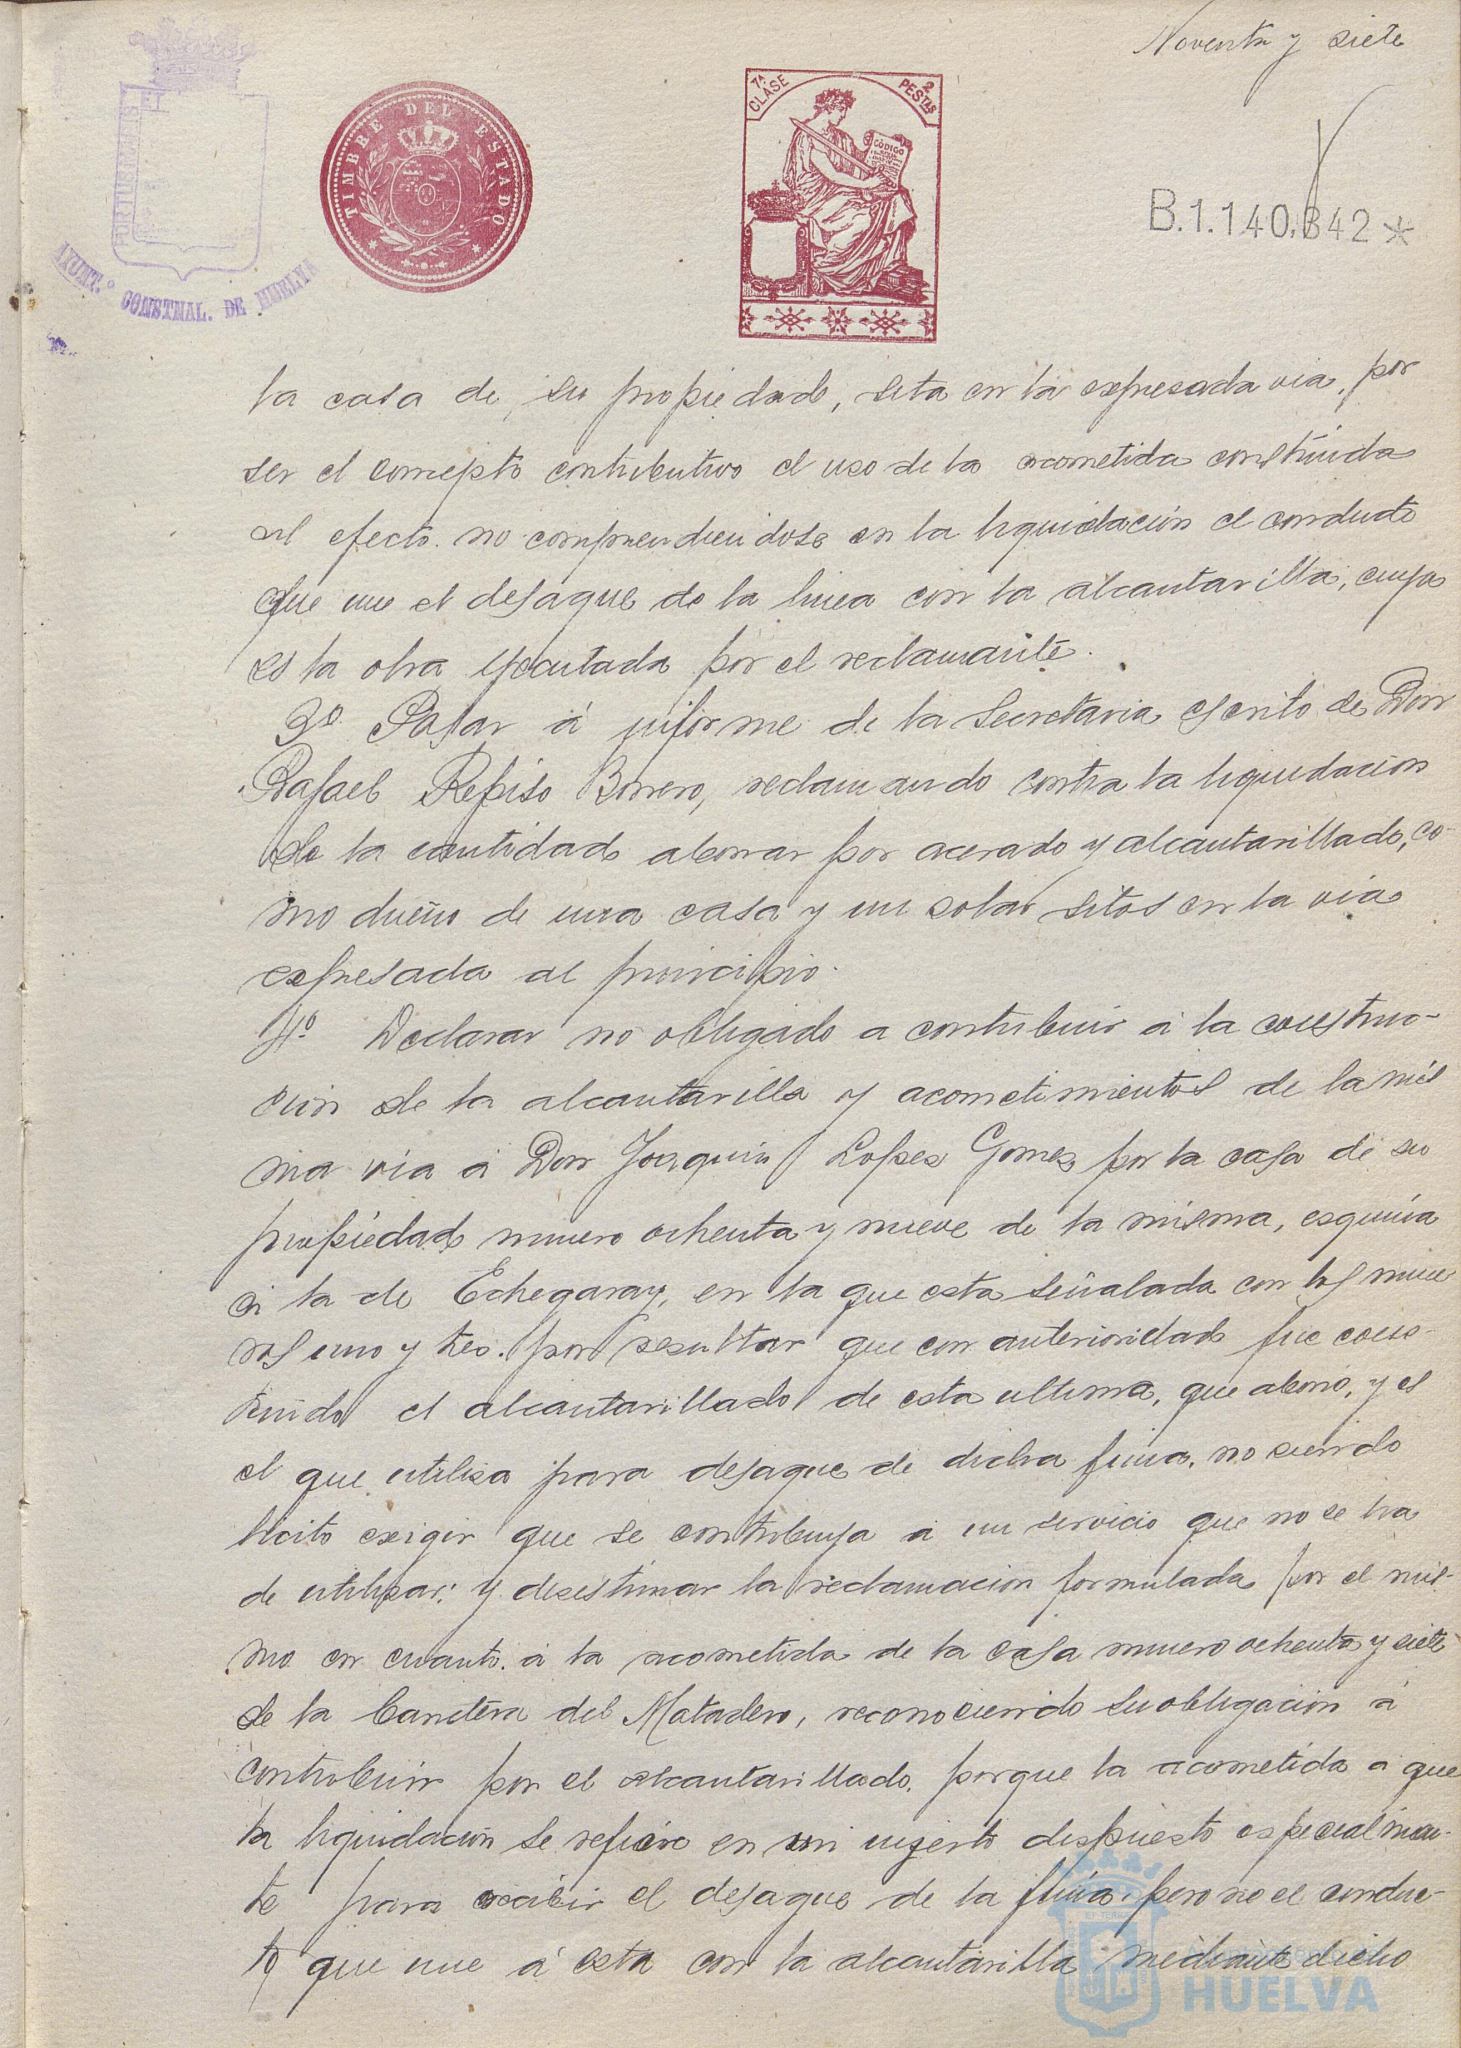 Noventa y siete
TIMBRE DEL ESTADO
7ª CLASE
2 PESTAS
CÓDIGO
PORTUS MARIS
AYUNT.º CONSTNAL. DE HUELVA
B.1.140.342*
la casa de su propiedad, sita en la expresada via, por
ser el concepto contributivo el uso de la acometida constrúida
al efecto. no comprendiendose en la liquidación el conducto
que une el desague de la linea con la alcantarilla, cuya
es la obra ejecutada por el reclamante.
3º Pasar á informe de la Secretaria escrito de Don
Rafael Repiso Borrero, reclamando contra la liquidacion
de la cantidad abonar por acerado y alcantarillado, co-
mo dueño de una casa y un solar sitos en la via
expresada al principio.
4º Declarar no obligado a contribuir á la construc-
cion de la alcantarilla y acometimientos de la mis
ma via á Don Joaquin Lopez Gomez por la casa de su
propiedad numero ochenta y nueve de la misma, esquina
á la de Echegaray, en la que esta señalada con los nume
ros uno y tres. por resultar que con anterioridad fue cons-
truido el alcantarillado de esta ultima, que abonó, y es
el que utiliza para desague de dicha finca, no siendo
licito exigir que se contribuya á un servicio que no se ha
de utilizar; y desestimar la reclamacion formulada por el mis-
mo en cuanto á la acometida de la casa numero ochenta y siete
de la Carretera del Matadero, reconociendo su obligacion á
contribuir por el alcantarillado, porque la acometida á que
la liquidación se refiere en un injerto dispuesto especialmen-
te para recibir el desague de la finca, pero no el conduc-
to que une á esta con la alcantarilla mediante dicho
HUELVA